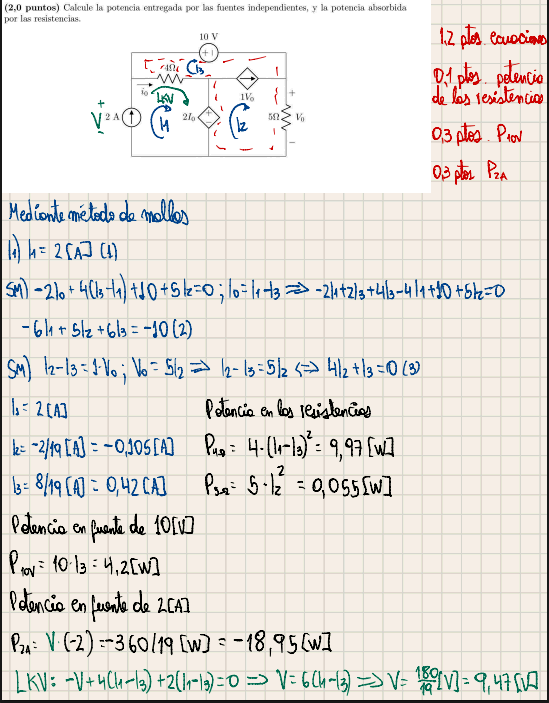 (2,0 puntos) Calcule la potencia entregada por las fuentes independientes, y la potencia absorbida
por las resistencias.
10 V
+ -
4Ω
I3
i₀
LKV
1V₀
+
V
-
2 A
I1
2I₀
+
I2
5Ω
+
V₀
-
1.2 ptos. ecuaciones
0,1 ptos. potencia
de las resistencias
0,3 ptos. P10V
0,3 ptos P2A
Mediante método de mallas
I1) I1 = 2 [A] (1)
SM) -2I0 + 4(I3-I1) + 10 + 5I2 = 0 ; I0 = I1-I3 ⇒ -2I1+2I3+4I3-4I1+10+5I2=0
-6I1 + 5I2 + 6I3 = -10 (2)
SM) I2-I3 = 1·V0 ; V0 = 5I2 ⇒ I2-I3 = 5I2 ⇔ 4I2+I3=0 (3)
I1 = 2 [A]
Potencia en las resistencias
I2 = -2/19 [A] = -0,105 [A]
P4Ω = 4·(I1-I3)² = 9,97 [W]
I3 = 8/19 [A] = 0,42 [A]
P5Ω = 5·I2² = 0,055 [W]
Potencia en fuente de 10 [V]
P10V = 10·I3 = 4,2 [W]
Potencia en fuente de 2 [A]
P2A = V·(-2) = -360/19 [W] = -18,95 [W]
LKV: -V+4(I1-I3)+2(I1-I3)=0 ⇒ V=6(I1-I3) ⇒ V= 180/19 [V] = 9,47 [V]